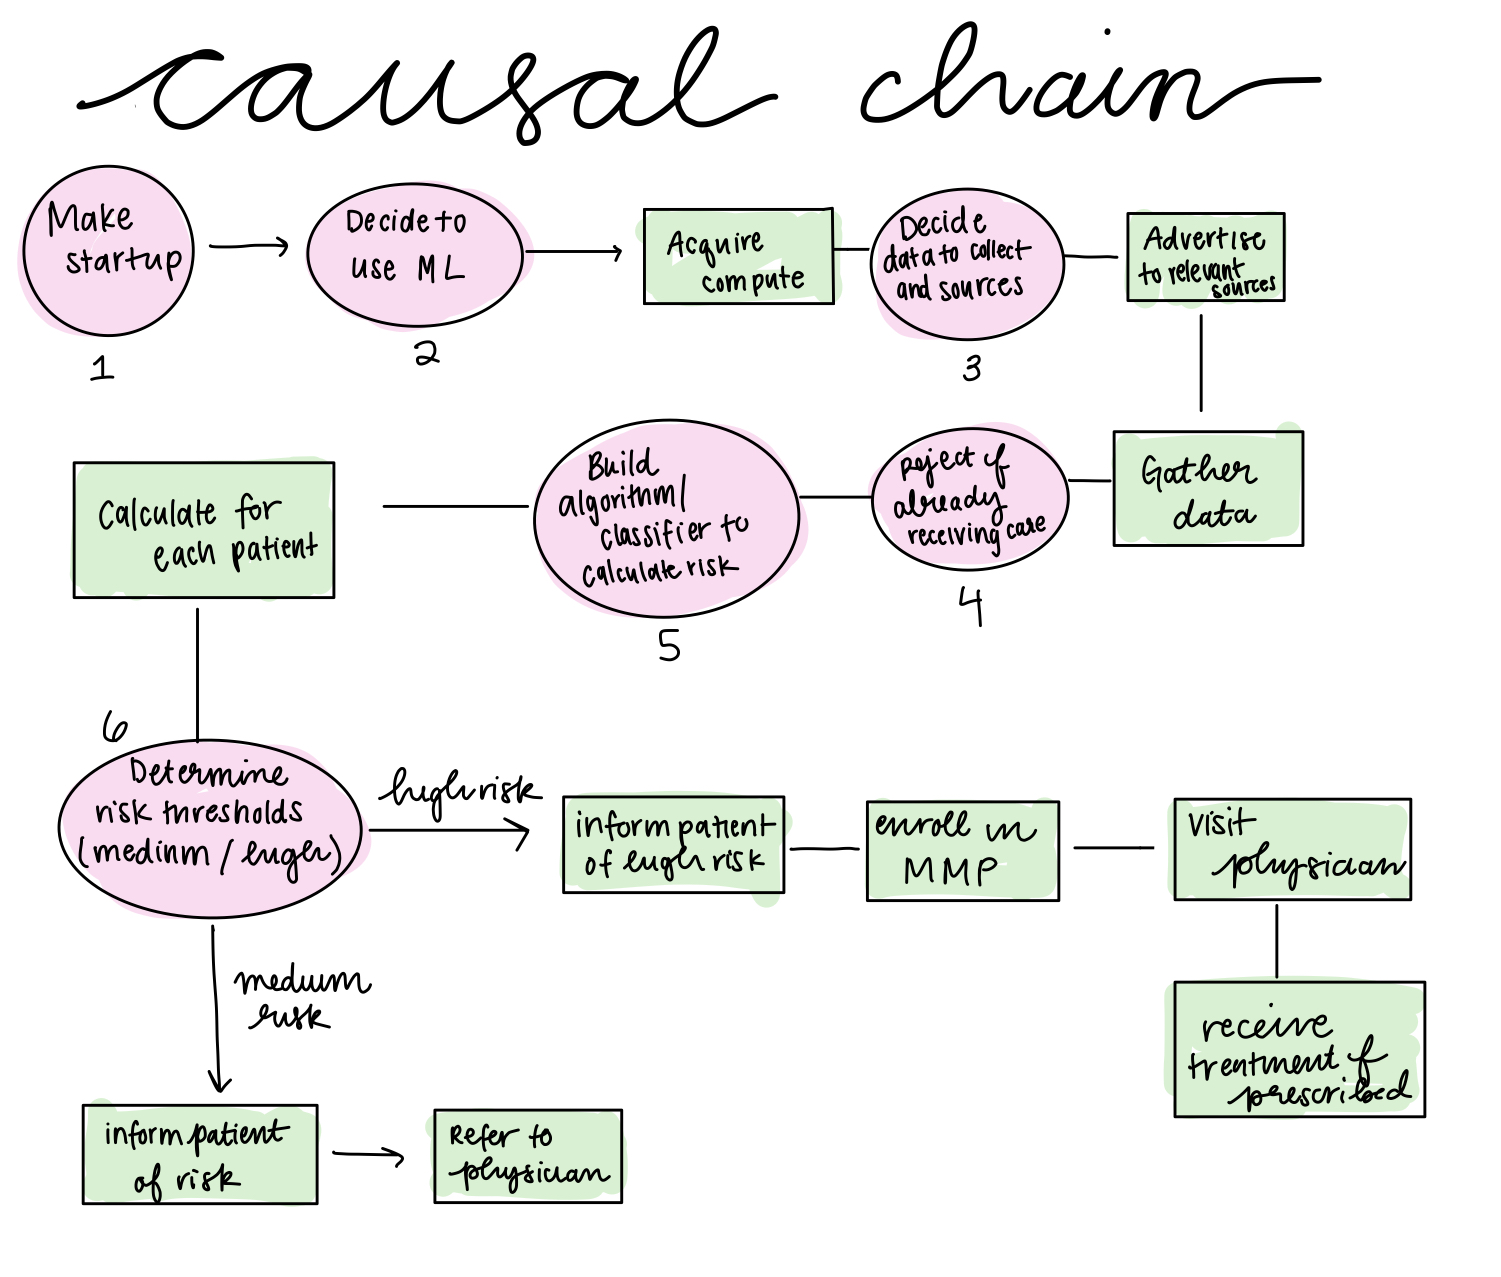 causal chain
Make
startup
1
Decide to
use ML
2
Acquire
compute
Decide
data to collect
and sources
3
Advertise
to relevant
sources
Gather
data
reject if
already
receiving care
4
Build
algorithm/
classifier to
calculate risk
5
Calculate for
each patient
6
Determine
risk thresholds
(medium / high)
high risk
inform patient
of high risk
enroll in
MMP
visit
physician
receive
treatment if
prescribed
medium
risk
inform patient
of risk
Refer to
physician